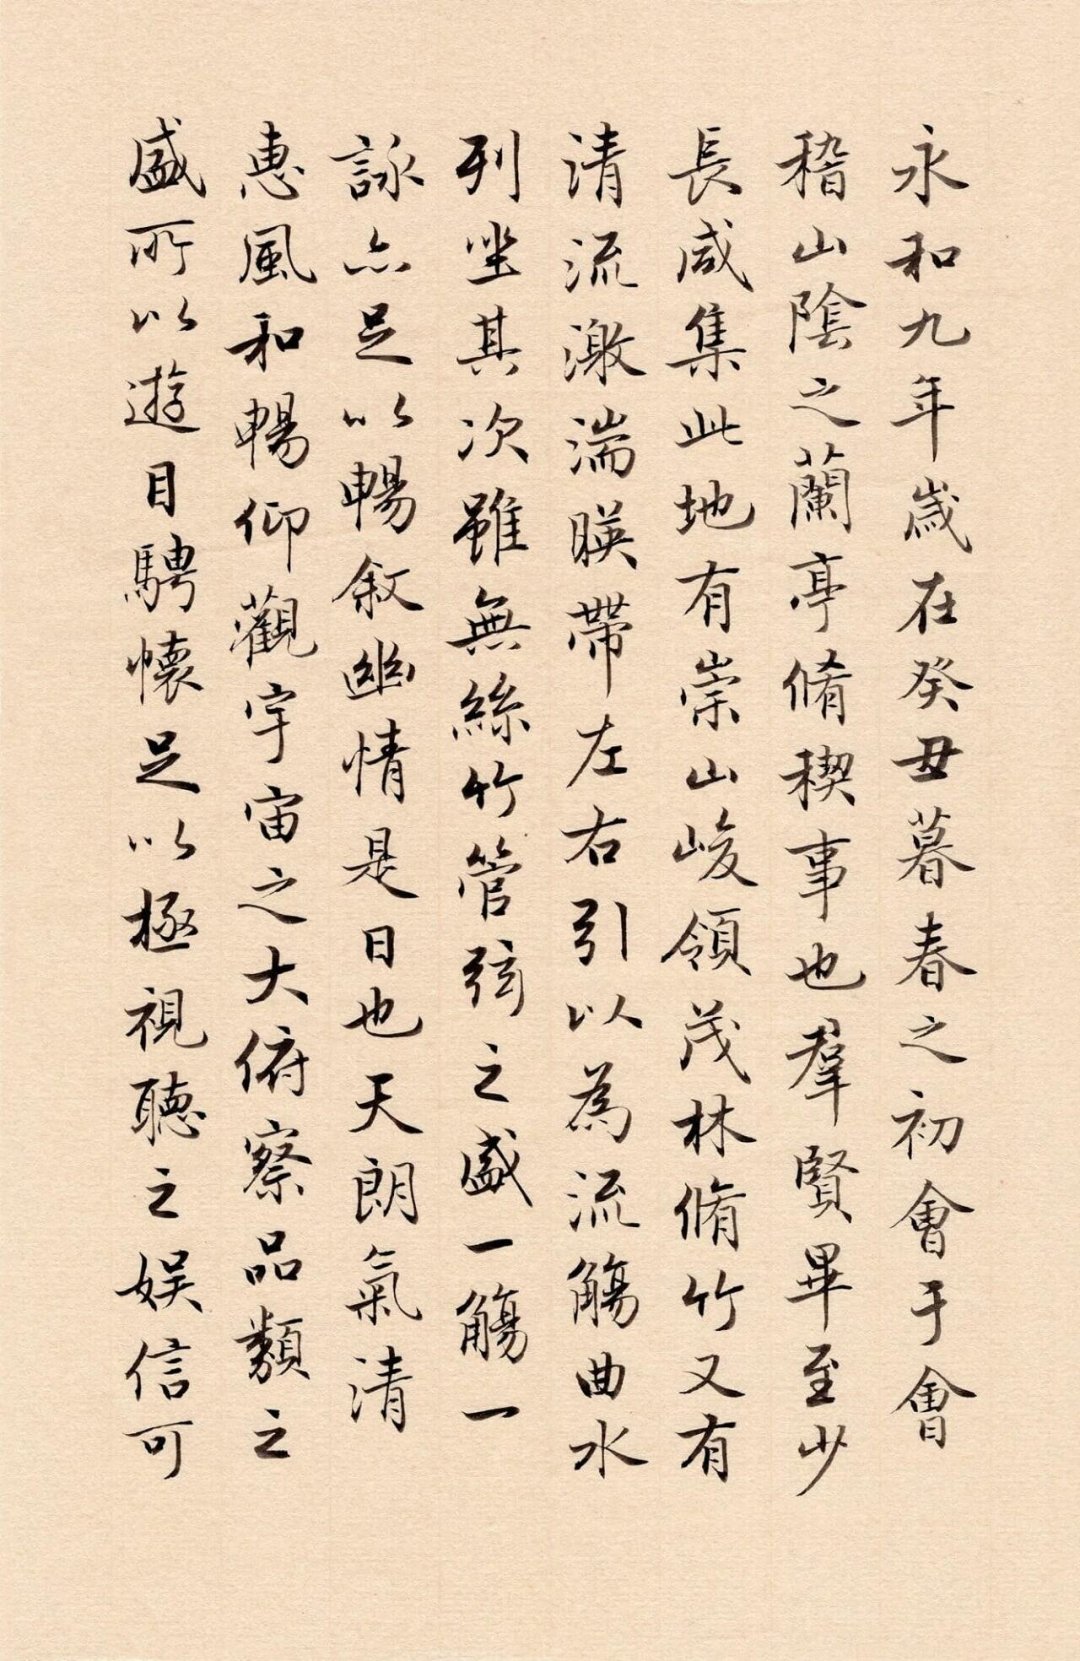 永和九年歲在癸丑暮春之初會于會
稽山陰之蘭亭脩稧事也羣賢畢至少
長咸集此地有崇山峻領茂林脩竹又有
清流激湍暎帶左右引以為流觴曲水
列坐其次雖無絲竹管弦之盛一觴一
詠亦足以暢敘幽情是日也天朗氣清
惠風和暢仰觀宇宙之大俯察品類之
盛所以遊目騁懷足以極視聽之娱信可